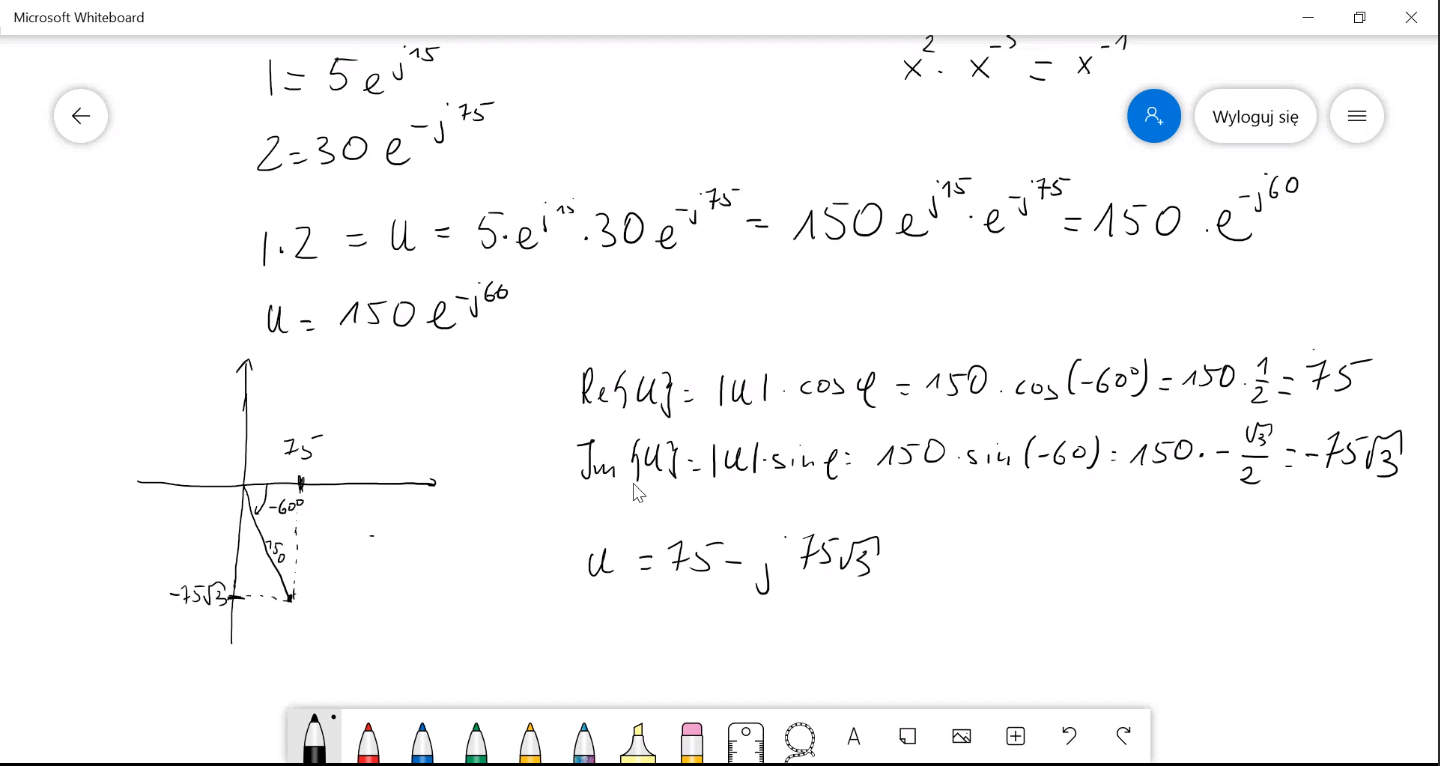 Microsoft Whiteboard
1 = 5 e^{j15}
x^2 · x^{-3} = x^{-1}
Wyloguj się
2 = 30 e^{-j75}
1·2 = U = 5·e^{j15}·30 e^{-j75} = 150 e^{j15}·e^{-j75} = 150·e^{-j60}
U = 150 e^{-j60}
Re{U} = |U|·cos φ = 150·cos(-60°) = 150·1/2 = 75
Im{U} = |U|·sin φ = 150·sin(-60) = 150·-√3/2 = -75√3
75
-60°
150
-75√3
U = 75 - j 75√3
A